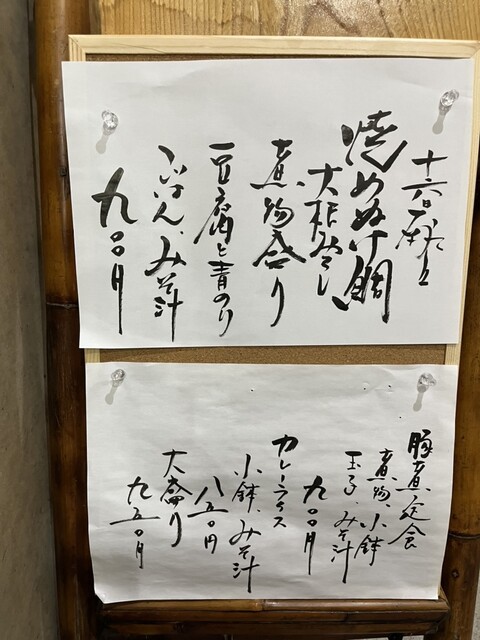 十六日献立
焼めぬけ鯛
大根おろし
煮物盛り
豆腐と青のり
ごはん、みそ汁
九〇〇円
豚煮定食
煮物、小鉢
玉子、みそ汁
九〇〇円
カレーライス
小鉢、みそ汁
八五〇円
大盛り
九五〇円